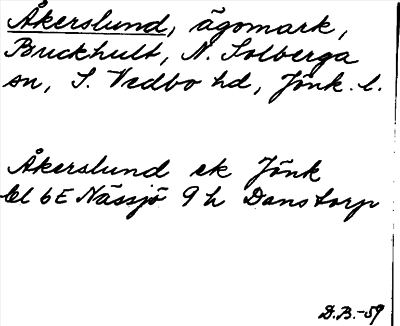 Åkerslund, ägomark,
Bruckhult, N. Solberga
sn, S. Vedbo hd, Jönk. l.
Åkerslund ek Jönk
bl 6E Nässjö 9 h Danstorp
D.B.-59